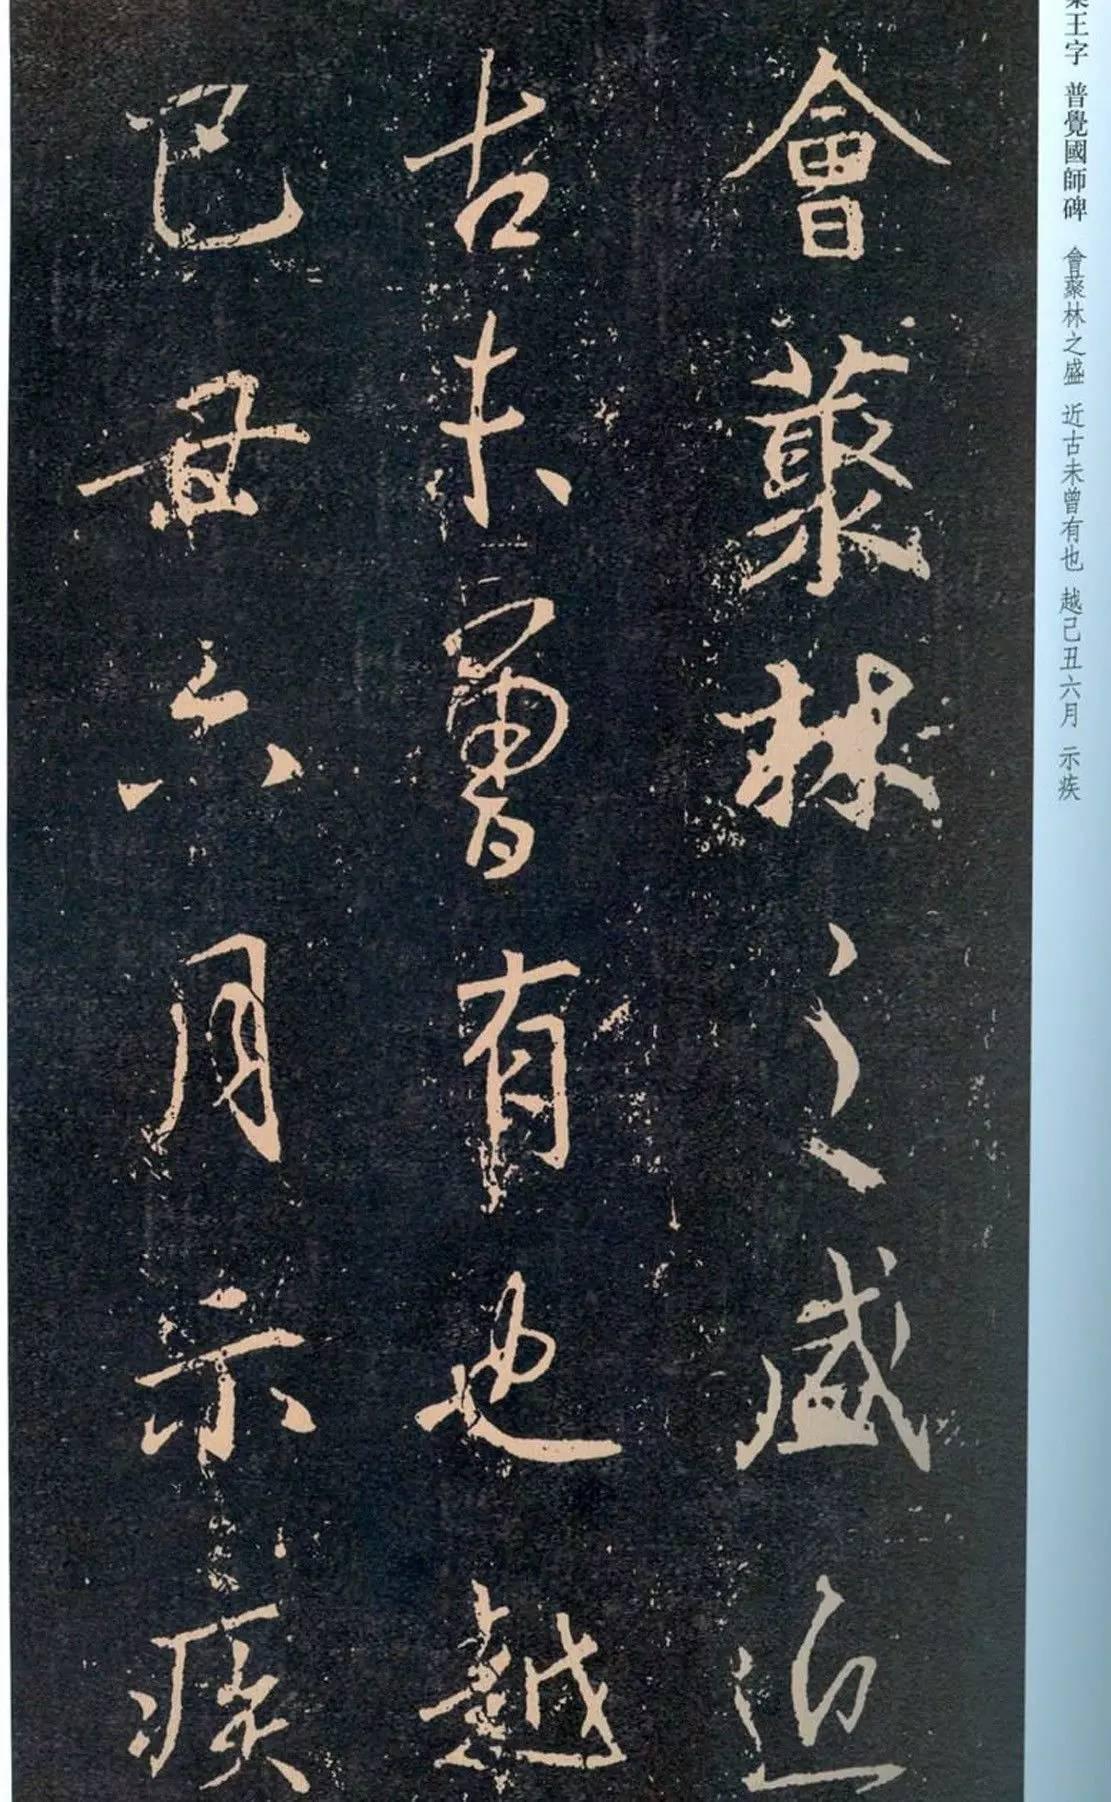 王字 普覺國師碑 會藂林之盛 近古未曾有也 越己丑六月 示疾
會藂林之盛近
古未曾有也越
己丑六月示疾